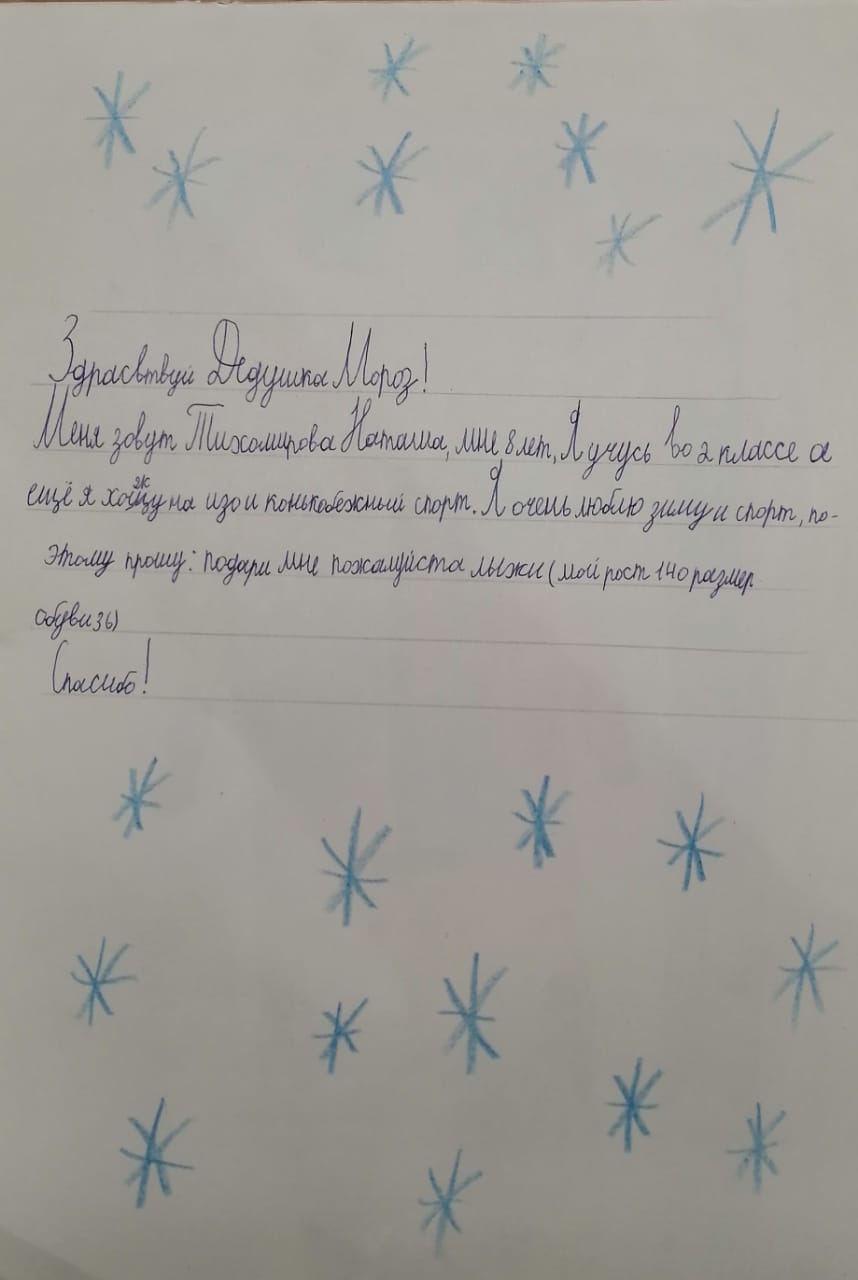 Здрасвтвуй Дедушка Мороз!
Меня зовут Тихомирова Наташа, мне 8 лет, Я учусь во 2 классе а
ещё я хожу на изо и конькобежный спорт. Я очень люблю зиму и спорт, по-
этому прошу: подари мне пожалуйста лыжи (мой рост 140 размер
обуви 36)
Спасибо!